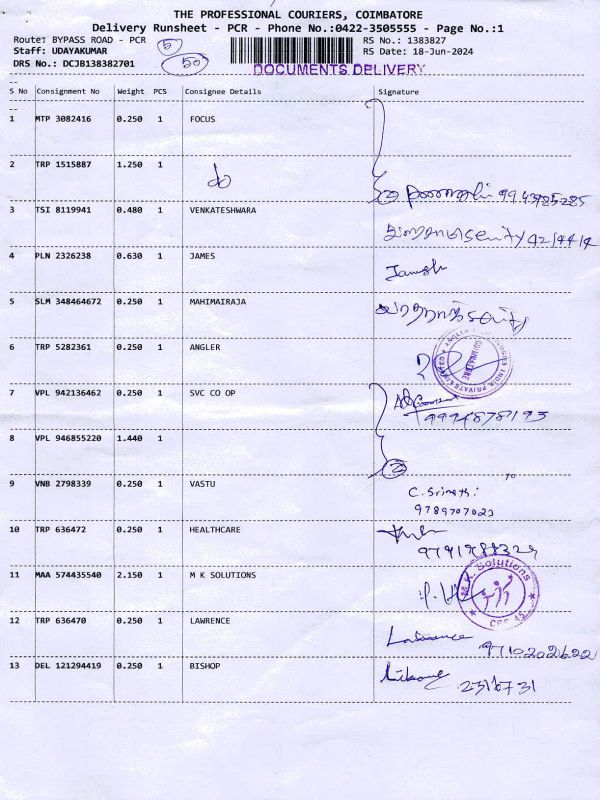 THE PROFESSIONAL COURIERS, COIMBATORE
Delivery Runsheet - PCR - Phone No.:0422-3505555 - Page No.:1
Route: BYPASS ROAD - PCR 5 RS No.: 1383827
Staff: UDAYAKUMAR RS Date: 18-Jun-2024
DRS No.: DCJB138382701 50 DOCUMENTS DELIVERY
S No Consignment No Weight PCS Consignee Details Signature
1 MTP 3082416 0.250 1 FOCUS
2 TRP 1515887 1.250 1 do
3 TSI 8119941 0.480 1 VENKATESHWARA
4 PLN 2326238 0.630 1 JAMES
5 SLM 348464672 0.250 1 MAHIMAIRAJA
6 TRP 5282361 0.250 1 ANGLER COIMBATORE
7 VPL 942136462 0.250 1 SVC CO OP
8 VPL 946855220 1.440 1 2
9 VNB 2798339 0.250 1 VASTU C. Srimathi
9789707023
10 TRP 636472 0.250 1 HEALTHCARE
11 MAA 574435540 2.150 1 M K SOLUTIONS M.K. Solutions
12 TRP 636470 0.250 1 LAWRENCE Lawrence 9710202622
13 DEL 121294419 0.250 1 BISHOP